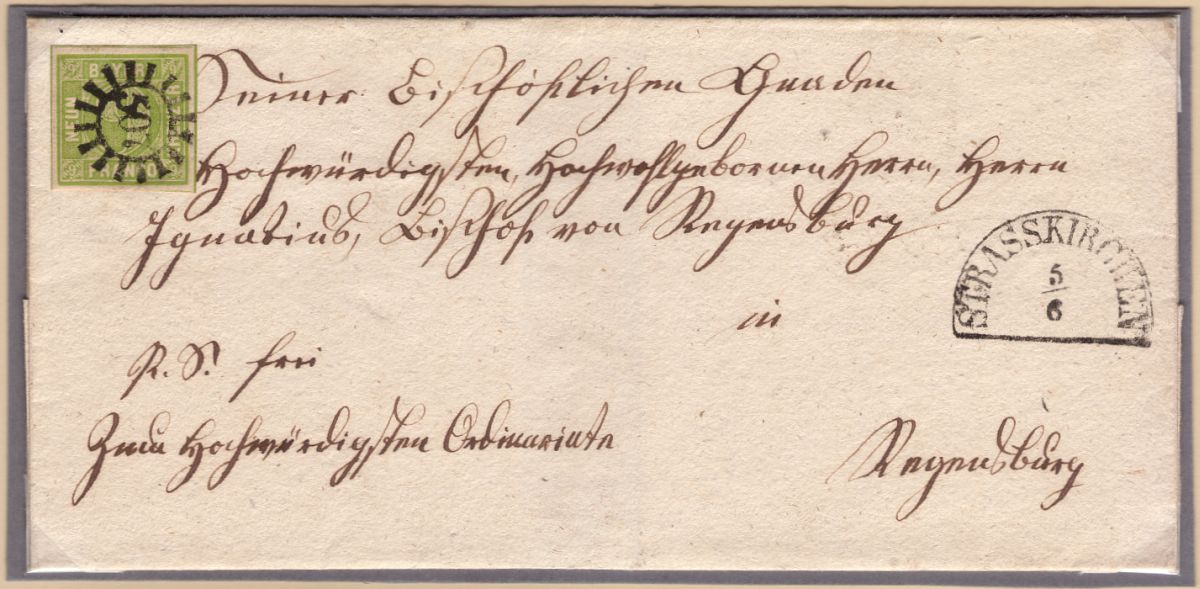 BAYERN
NEUN
FRANCO
Seiner Bischöflichen Gnaden
Hochwürdigsten, Hochwohlgebornen Herrn, Herrn
Ignatius, Bischof von Regensburg
STRASSKIRCHEN
5
6
in
R. S. frei
Zum Hochwürdigsten Ordinariate
Regensburg